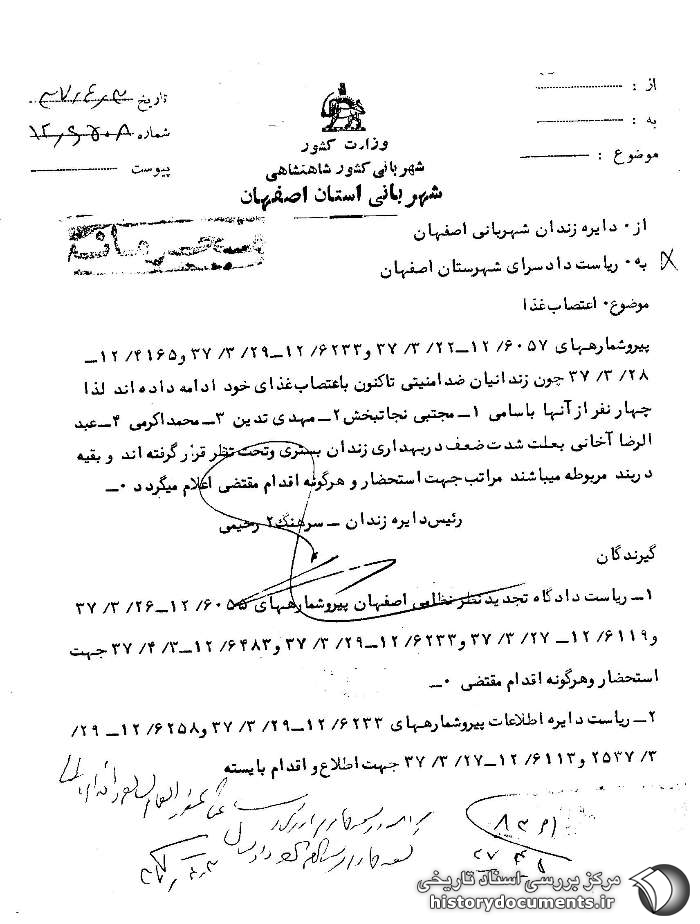 از :
به :
موضوع :
تاریخ ۳۷٫۴٫۳
شماره ۱۲٫۶۵۰۸
پیوست
وزارت کشور
شهربانی کشور شاهنشاهی
شهربانی استان اصفهان
محرمانه
از۰ دایره زندان شهربانی اصفهان
به۰ ریاست دادسرای شهرستان اصفهان
موضوع۰ اعتصاب غذا
پیروشمارههای ۱۲/۶۰۵۷ــ۳۷/۳/۲۲ و۱۲/۶۲۳۳ــ۳۷/۳/۲۹ و۱۲/۴۱۶۵ــ
۳۷/۳/۲۸ چون زندانیان ضدامنیتی تاکنون باعتصاب غذای خود ادامه داده اند لذا
چهار نفر از آنها باسامی ۱ـ مجتبی نجاتبخش ۲ـ مهدی تدین ۳ـ محمداکرمی ۴ـ عبد
الرضا آخانی بعلت شدت ضعف در بهداری زندان بستری وتحت نظر قرار گرفته اند و بقیه
در بند مربوطه میباشند مراتب جهت استحضار و هرگونه اقدام مقتضی اعلام میگردد ۰ــ
رئیس دایره زندان ــ سرهنگ۲ رحیمی
گیرندگان
۱ــ ریاست دادگاه تجدید نظر نظامی اصفهان پیروشمارههای ۱۲/۶۰۵۵ــ۳۷/۳/۲۶
و۱۲/۶۱۱۹ــ۳۷/۳/۲۷ و۱۲/۶۲۳۳ــ۳۷/۳/۲۹ و۱۲/۶۴۸۳ــ۳۷/۴/۳ جهت
استحضار وهرگونه اقدام مقتضی ۰ــ
۲ــ ریاست دایره اطلاعات پیروشمارههای ۱۲/۶۲۳۳ــ۳۷/۳/۲۹ و۱۲/۶۲۵۸ــ۲۹/
۲۵۳۷/۳ و۱۲/۶۱۱۳ــ۳۷/۳/۲۷ جهت اطلاع و اقدام بایسته
مرکز بررسی اسناد تاریخی
historydocuments.ir